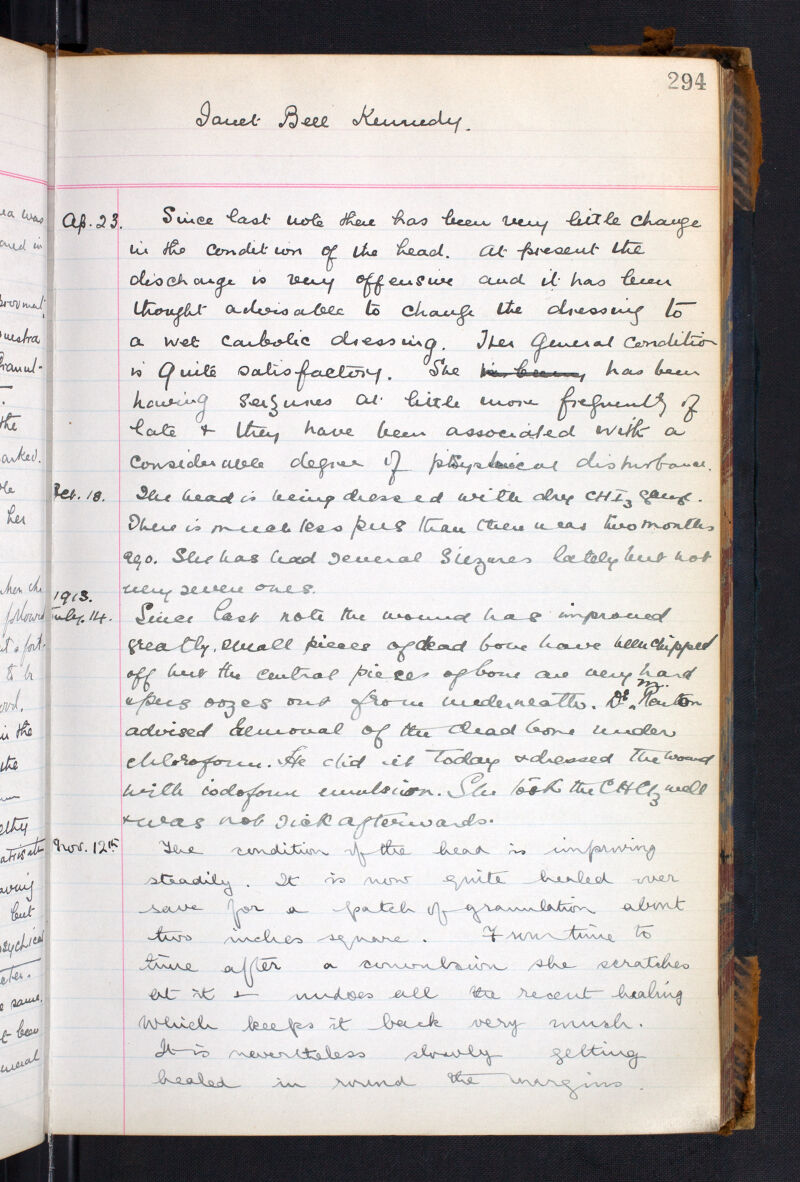 294
Janet Bell Kennedy.
Ap. 23. Since last note there has been very little change
in the condition of the head. At present the
discharge is very offensive and it has been
thought advisable to change the dressing to
a wet carbolic dressing. Her General Condition
is quite satisfactory. She has been
having seizures at little more frequently of
late & they have been associated with a
considerable degree of physical disturbance.
Oct. 18. The head is being dressed with dry CHI3 gauze.
There is much less pus than there was two months
ago. She has had several siezures lately but not
very severe ones.
1913.
July. 14. Since last note the wound has improved
greatly, small pieces of dead bone have been chipped
off but the central pieces of bone are very hard
& pus oozes out from underneath. Dr. M. Renton
advised removal of the dead bone under
chloroform. He did it today & dressed the wound
with iodoform emulsion. She took the CHCl3 well
& was not sick afterwards.
Nov. 12th The condition of the head is improving
steadily. It is now quite healed over
save for a patch of granulation about
two inches square. From time to
time after a convulsion she scratches
at it & undoes all the recent healing
which keeps it back very much.
It is nevertheless slowly getting
healed in round the margins.